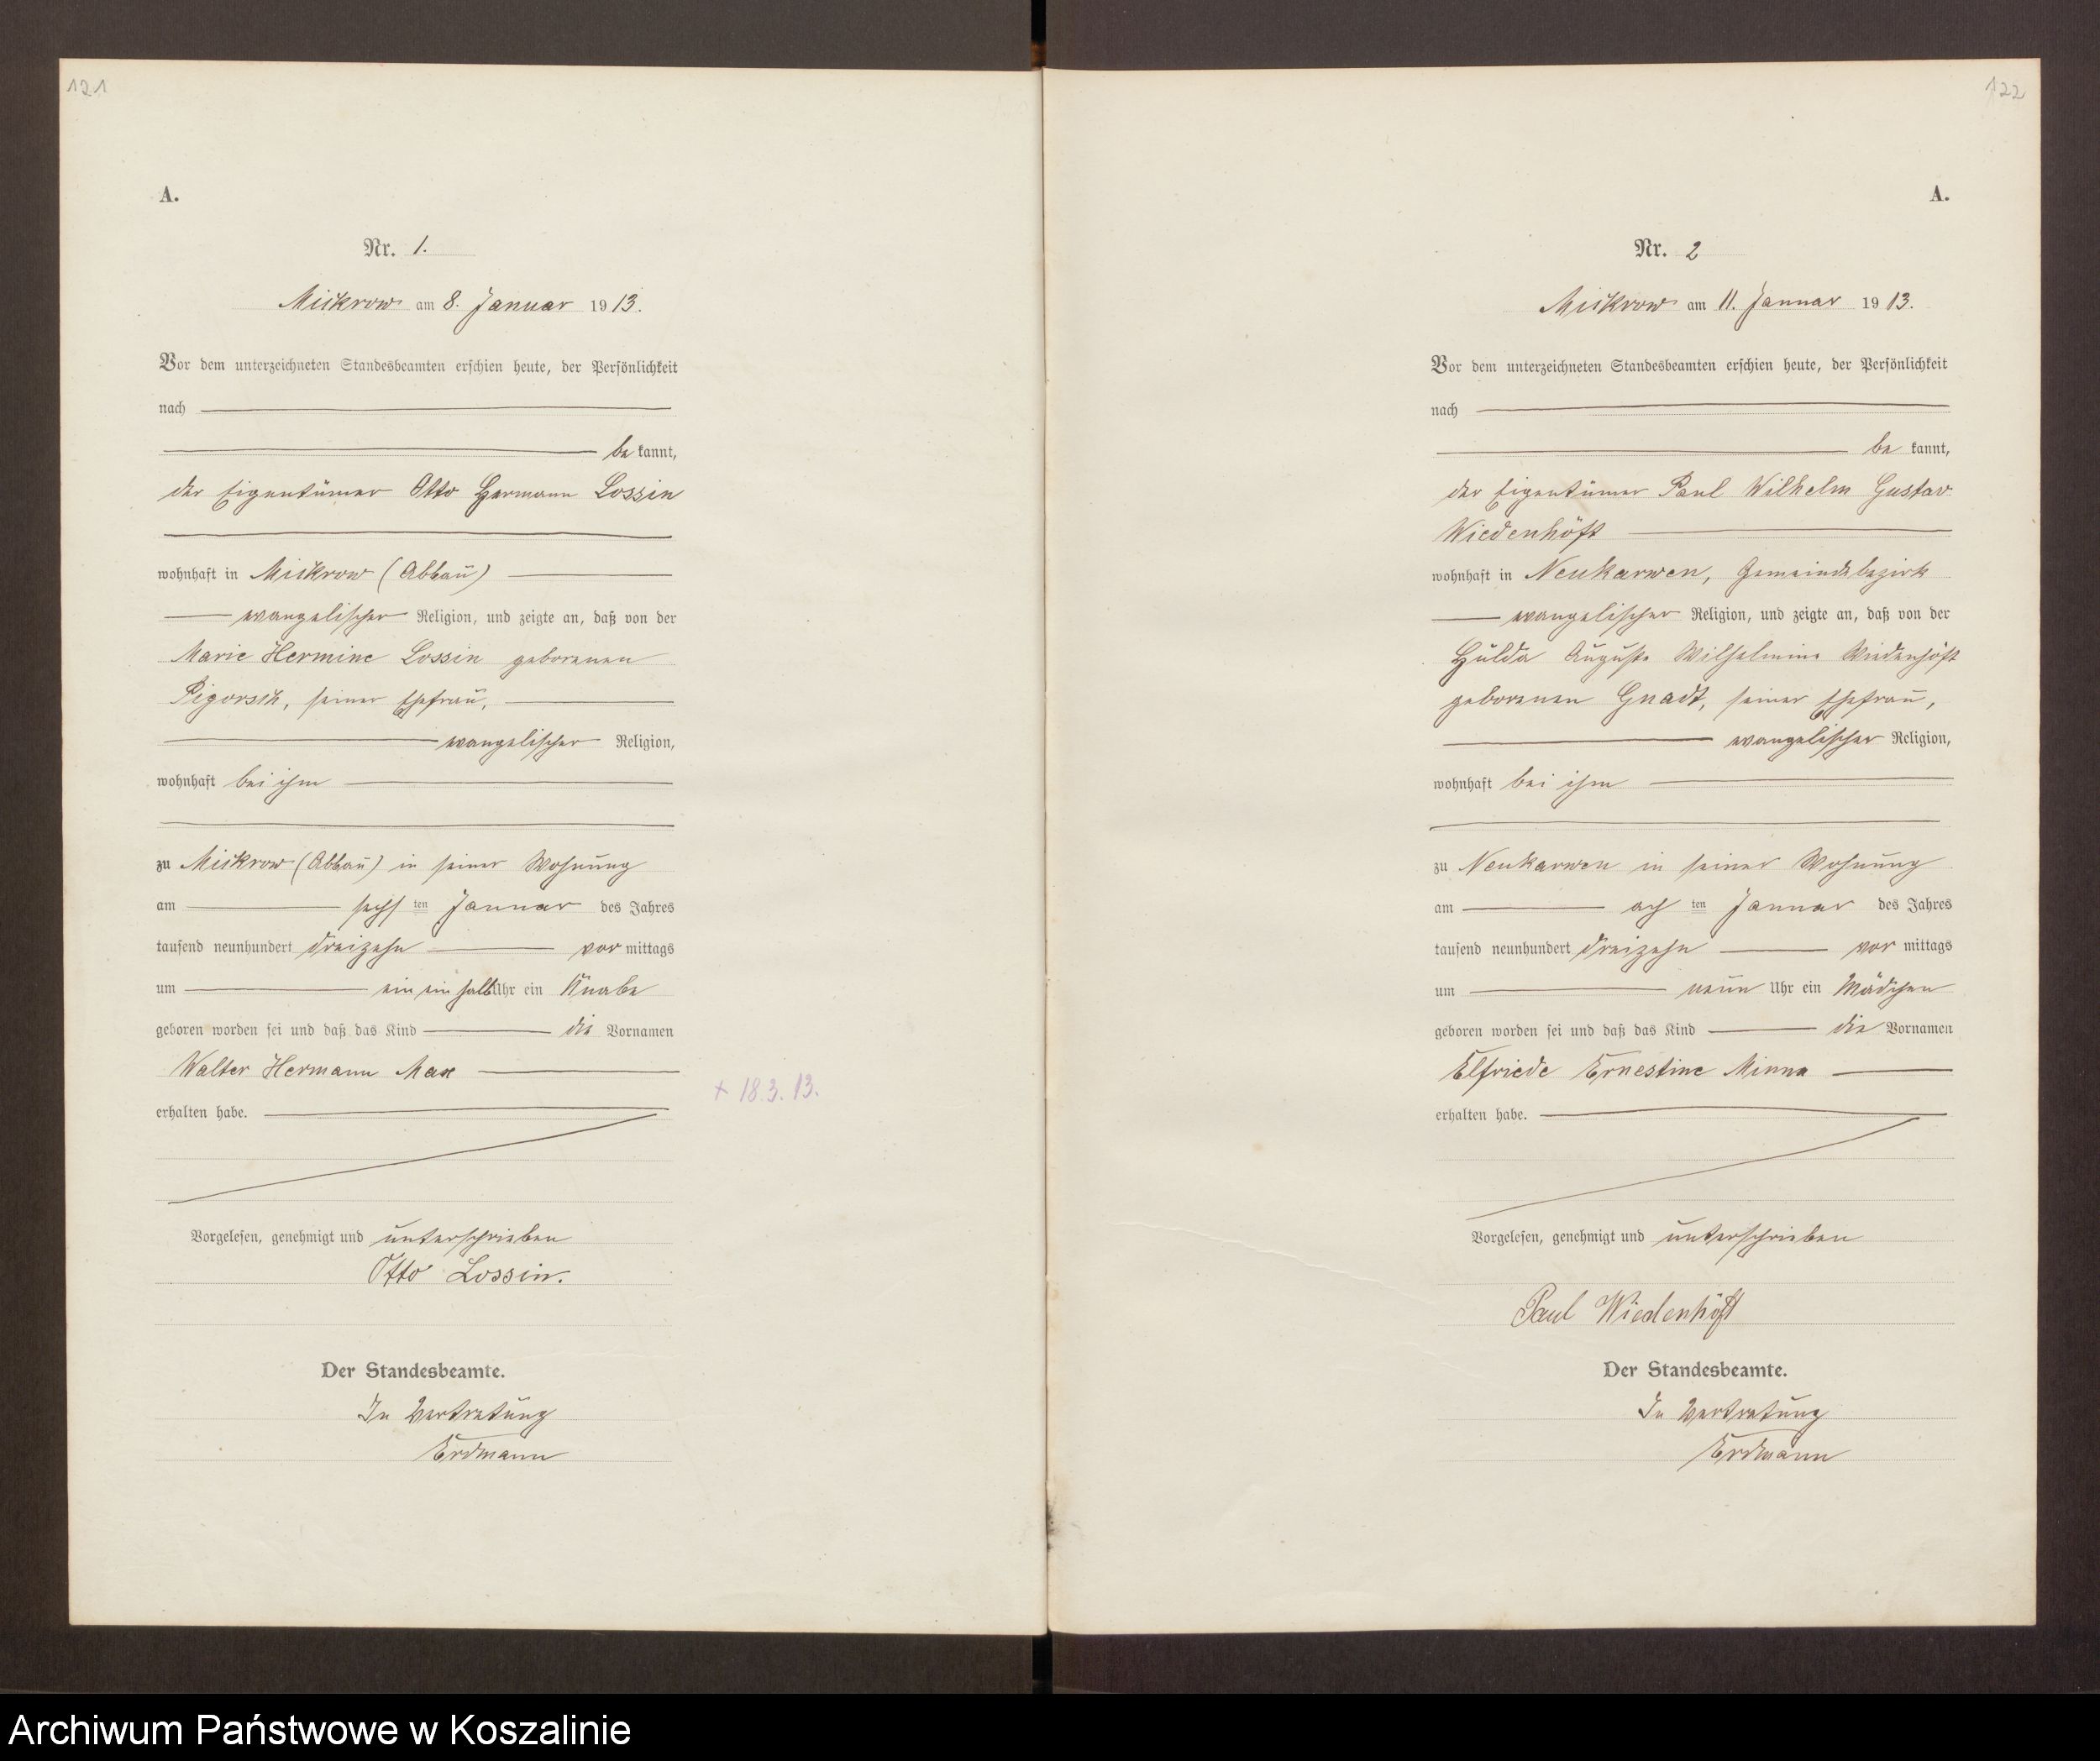 121
A.
Nr. 1.
Mickrow am 8. Januar 1913.
Vor dem unterzeichneten Standesbeamten erschien heute, der Persönlichkeit
nach
be kannt,
der Eigentümer Otto Hermann Lossin
wohnhaft in Mickrow (Abbau)
evangelischer Religion, und zeigte an, daß von der
Marie Hermine Lossin geborenen
Pigorsch, seiner Ehefrau,
evangelischer Religion,
wohnhaft bei ihm
zu Mickrow (Abbau) in seiner Wohnung
am sechs ten Januar des Jahres
tausend neunhundert dreizehn vor mittags
um ein ein halb Uhr ein Knabe
geboren worden sei und daß das Kind die Vornamen
Walter Hermann Max
+ 18.3.13.
erhalten habe.
Vorgelesen, genehmigt und unterschrieben
Otto Lossin.
Der Standesbeamte.
In Vertretung
Erdmann
122
A.
Nr. 2
Mickrow am 11. Januar 1913.
Vor dem unterzeichneten Standesbeamten erschien heute, der Persönlichkeit
nach
be kannt,
der Eigentümer Paul Wilhelm Gustav
Wiedenhöft
wohnhaft in Neukarwen, Gemeindebezirk
evangelischer Religion, und zeigte an, daß von der
Hulda Auguste Wilhelmine Wiedenhöft
geborenen Gnadt, seiner Ehefrau,
evangelischer Religion,
wohnhaft bei ihm
zu Neukarwen in seiner Wohnung
am ach ten Januar des Jahres
tausend neunhundert dreizehn vor mittags
um neun Uhr ein Mädchen
geboren worden sei und daß das Kind die Vornamen
Elfriede Ernestine Minna
erhalten habe.
Vorgelesen, genehmigt und unterschrieben
Paul Wiedenhöft
Der Standesbeamte.
In Vertretung
Erdmann
Archiwum Państwowe w Koszalinie